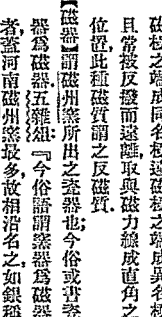 磁極之端成同名極遠磁極之端成異名極
且常被反撥而遠離取與磁力線成直角之
位置此種磁質謂之反磁質.
【磁器】謂磁州窰所出之瓷器也今俗或書瓷
器爲磁器.五雜俎『今俗語謂窰器爲磁器
者蓋河南磁州窰最多故相沿名之如銀稱